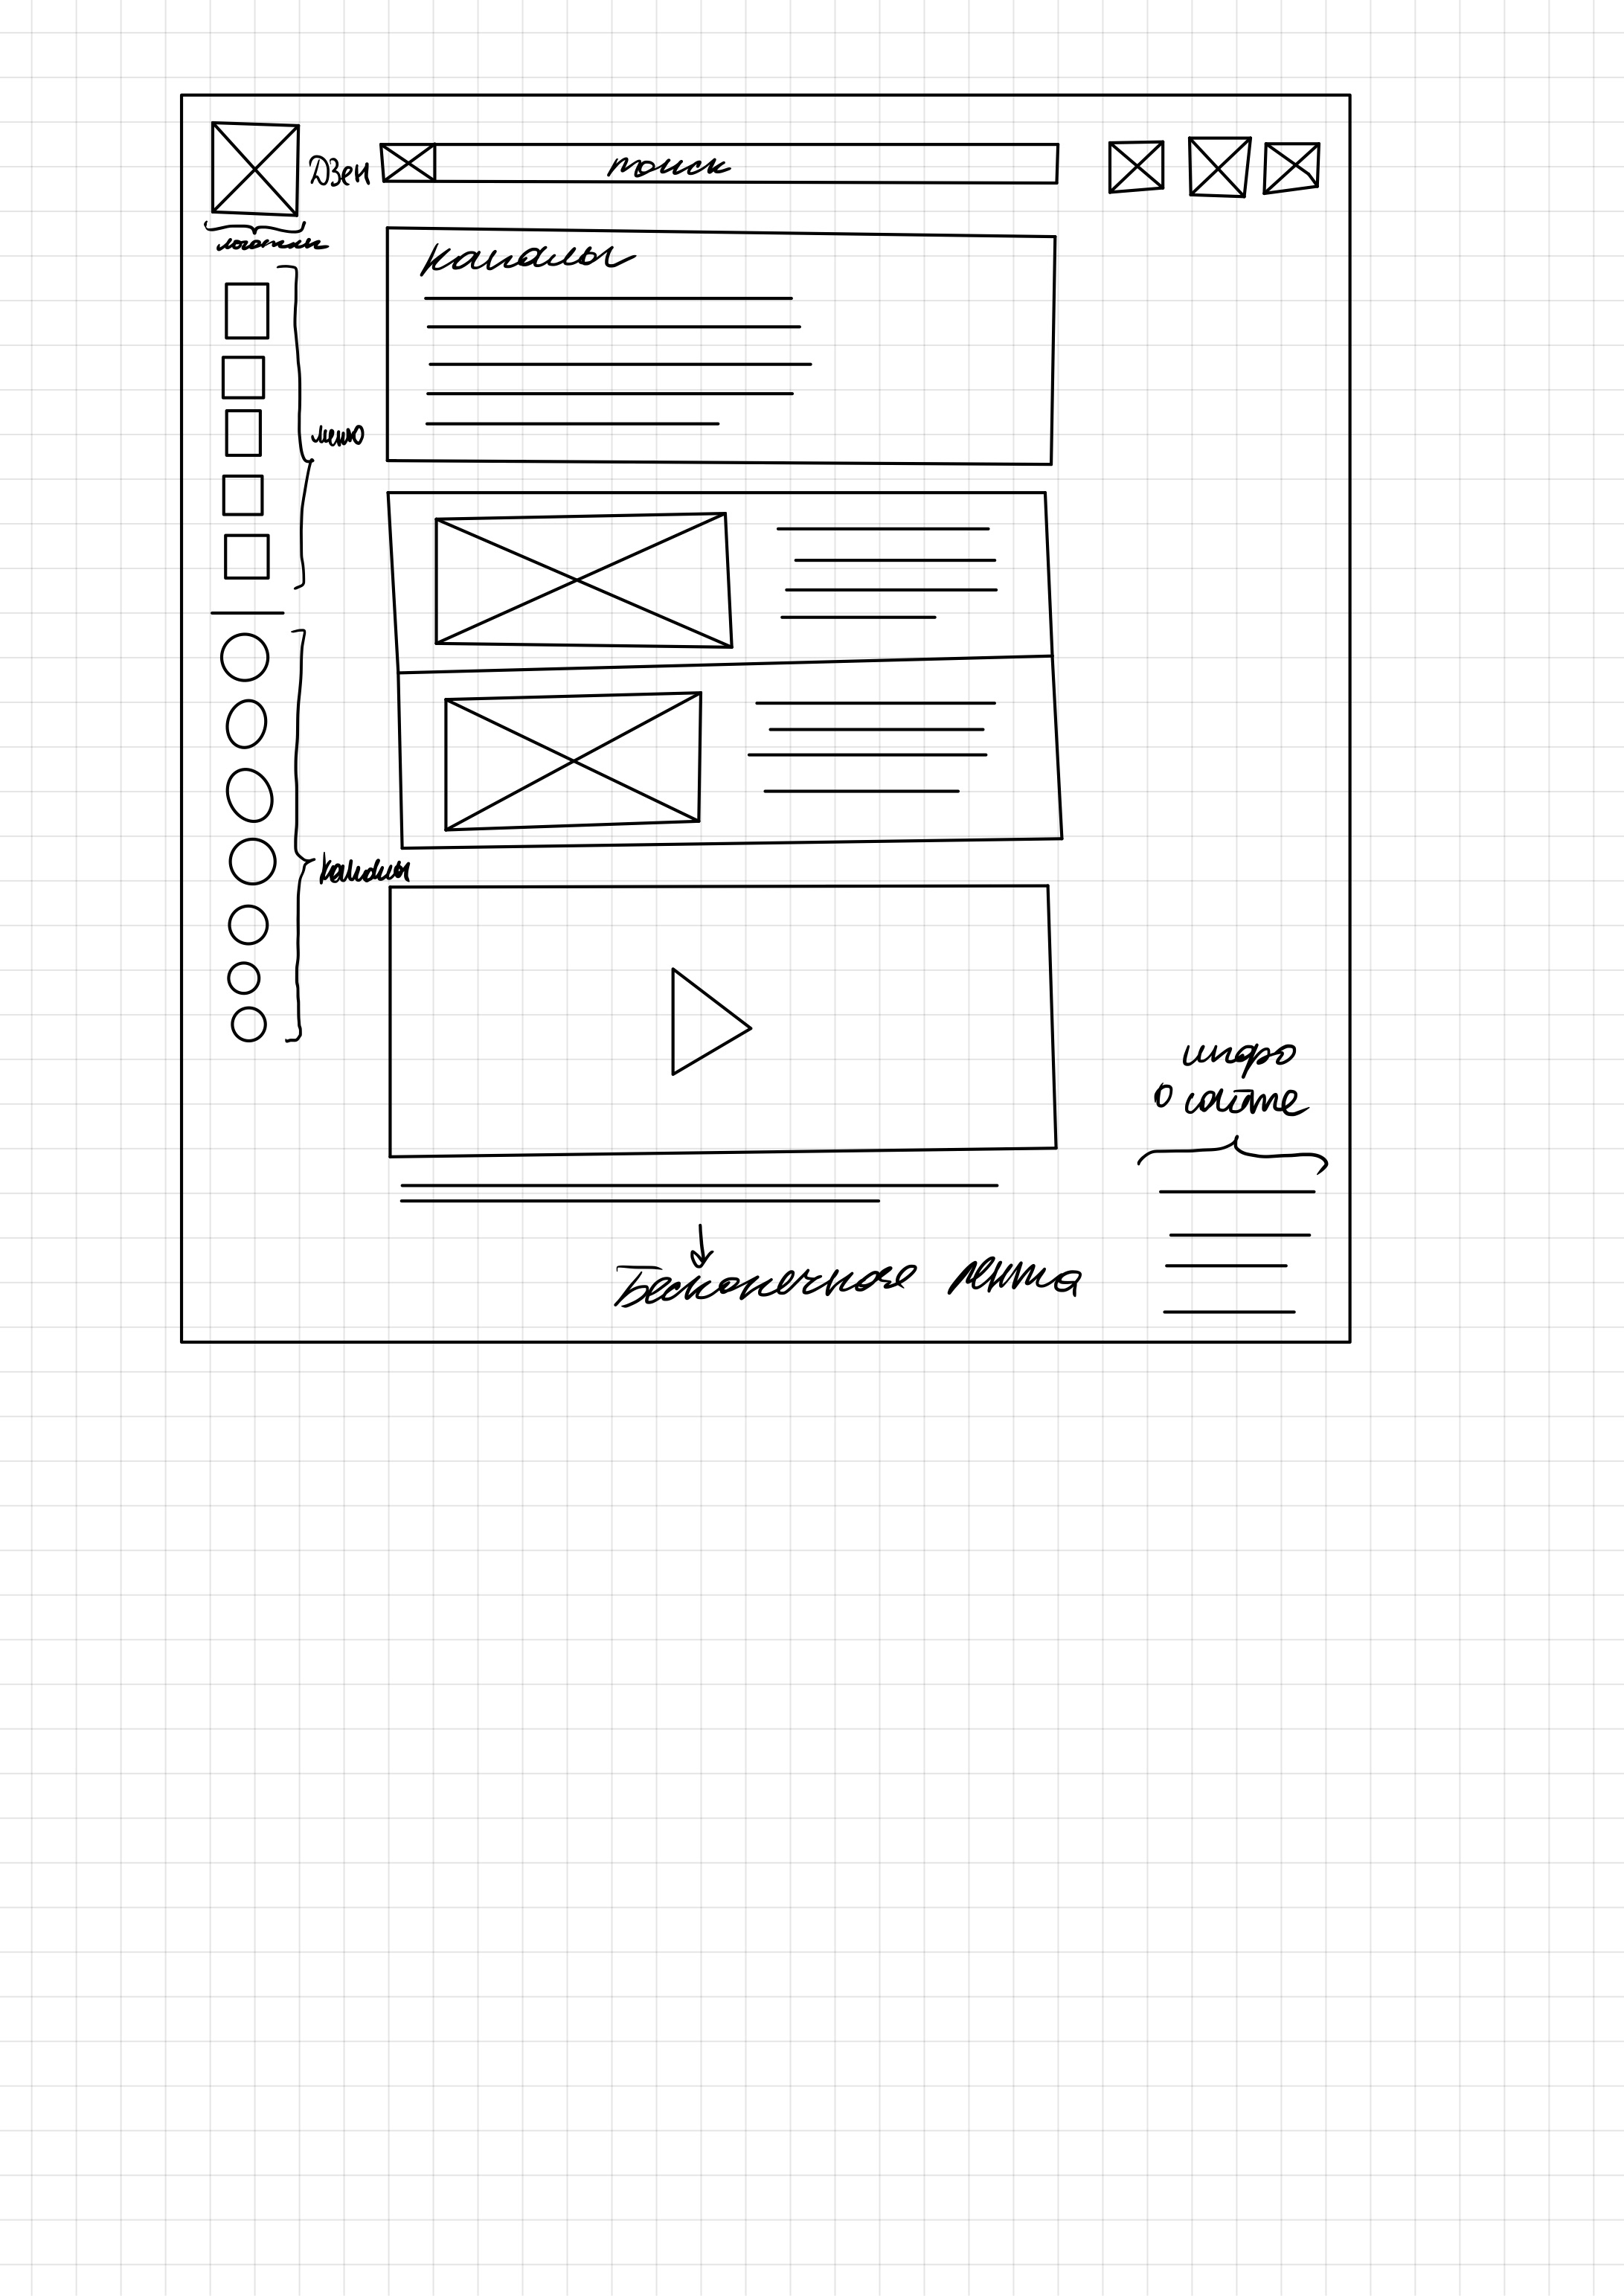 Дзен
поиск
логотип
каналы
меню
каналы
инфо
о сайте
Бесконечная лента